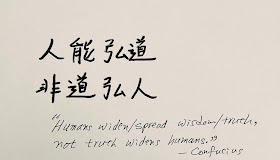 人能弘道
非道弘人
"Humans widen/spread wisdom/truth,
not truth widens humans."
– Confucius